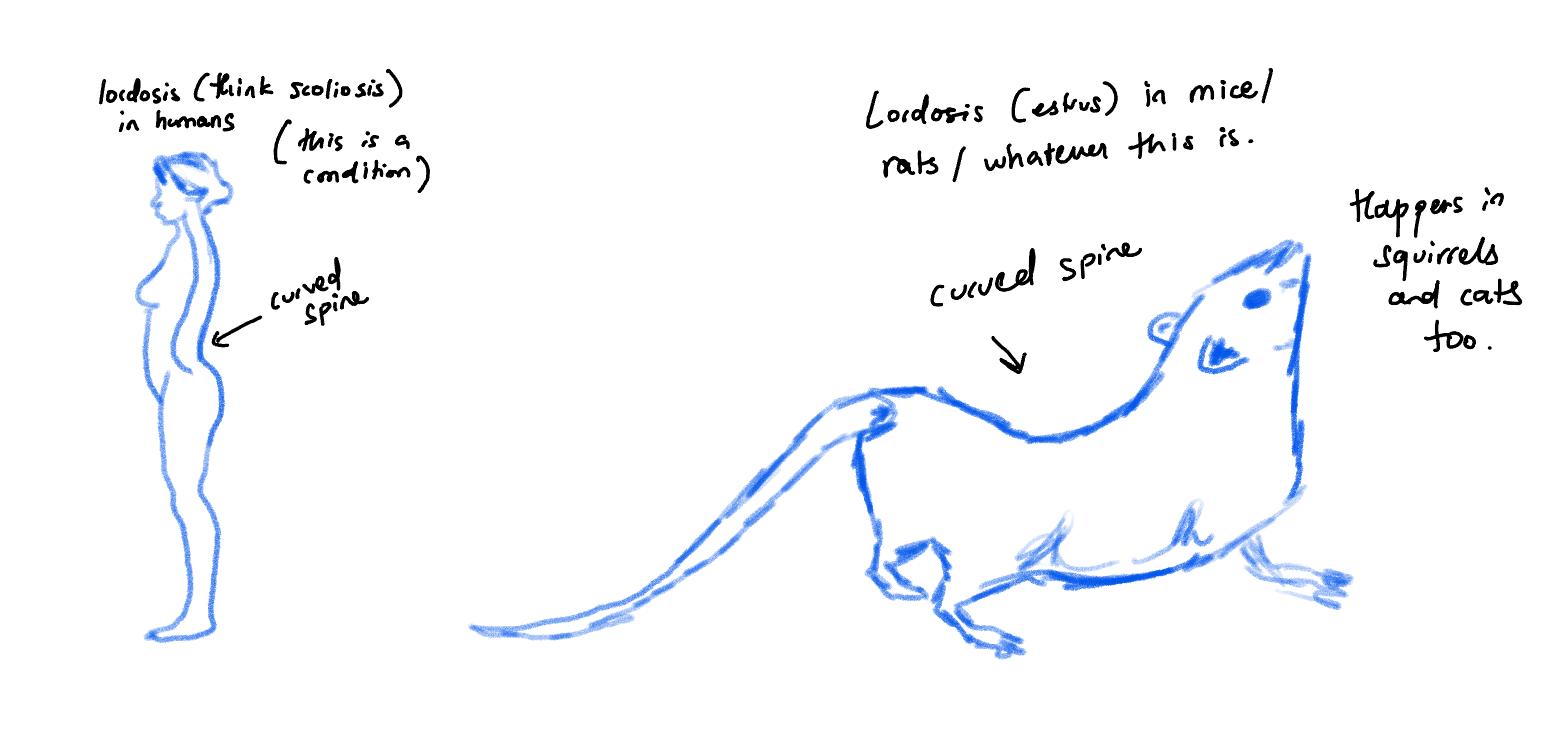 lordosis (think scoliosis)
in humans
(this is a
condition)
curved
spine
Lordosis (estrus) in mice/
rats / whatever this is.
curved spine
Happens in
squirrels
and cats
too.